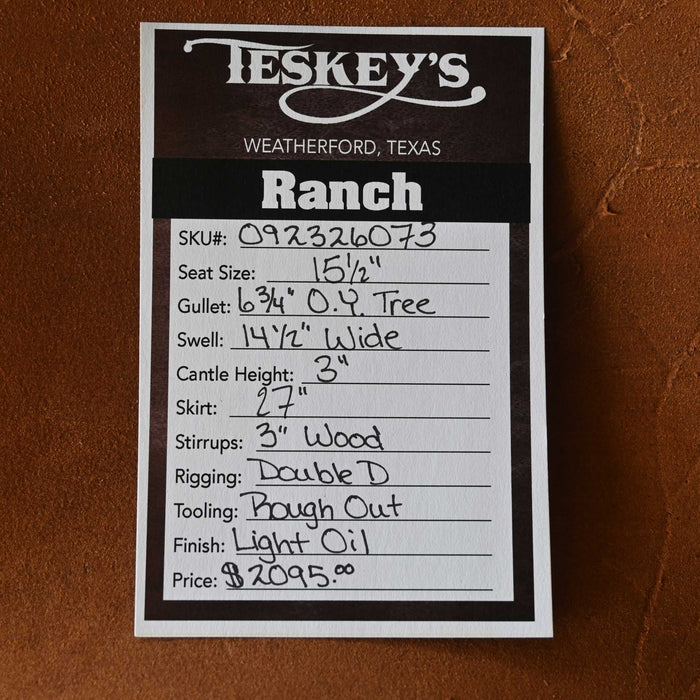 TESKEY'S
WEATHERFORD, TEXAS
Ranch
SKU#: 092326073
Seat Size: 15 1/2"
Gullet: 6 3/4" O.Y. Tree
Swell: 14 1/2" Wide
Cantle Height: 3"
Skirt: 27"
Stirrups: 3" Wood
Rigging: Double D
Tooling: Rough Out
Finish: Light Oil
Price: $2095.00